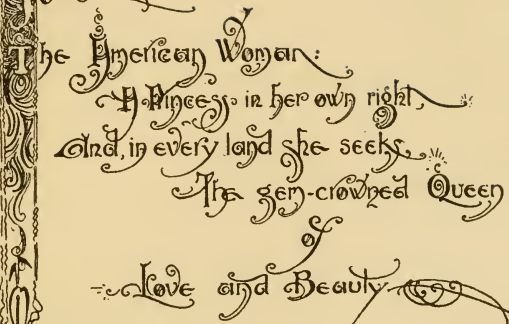 The American Woman:
A Princess in her own right,
And, in every land she seeks,
The gem-crowned Queen
of
Love and Beauty